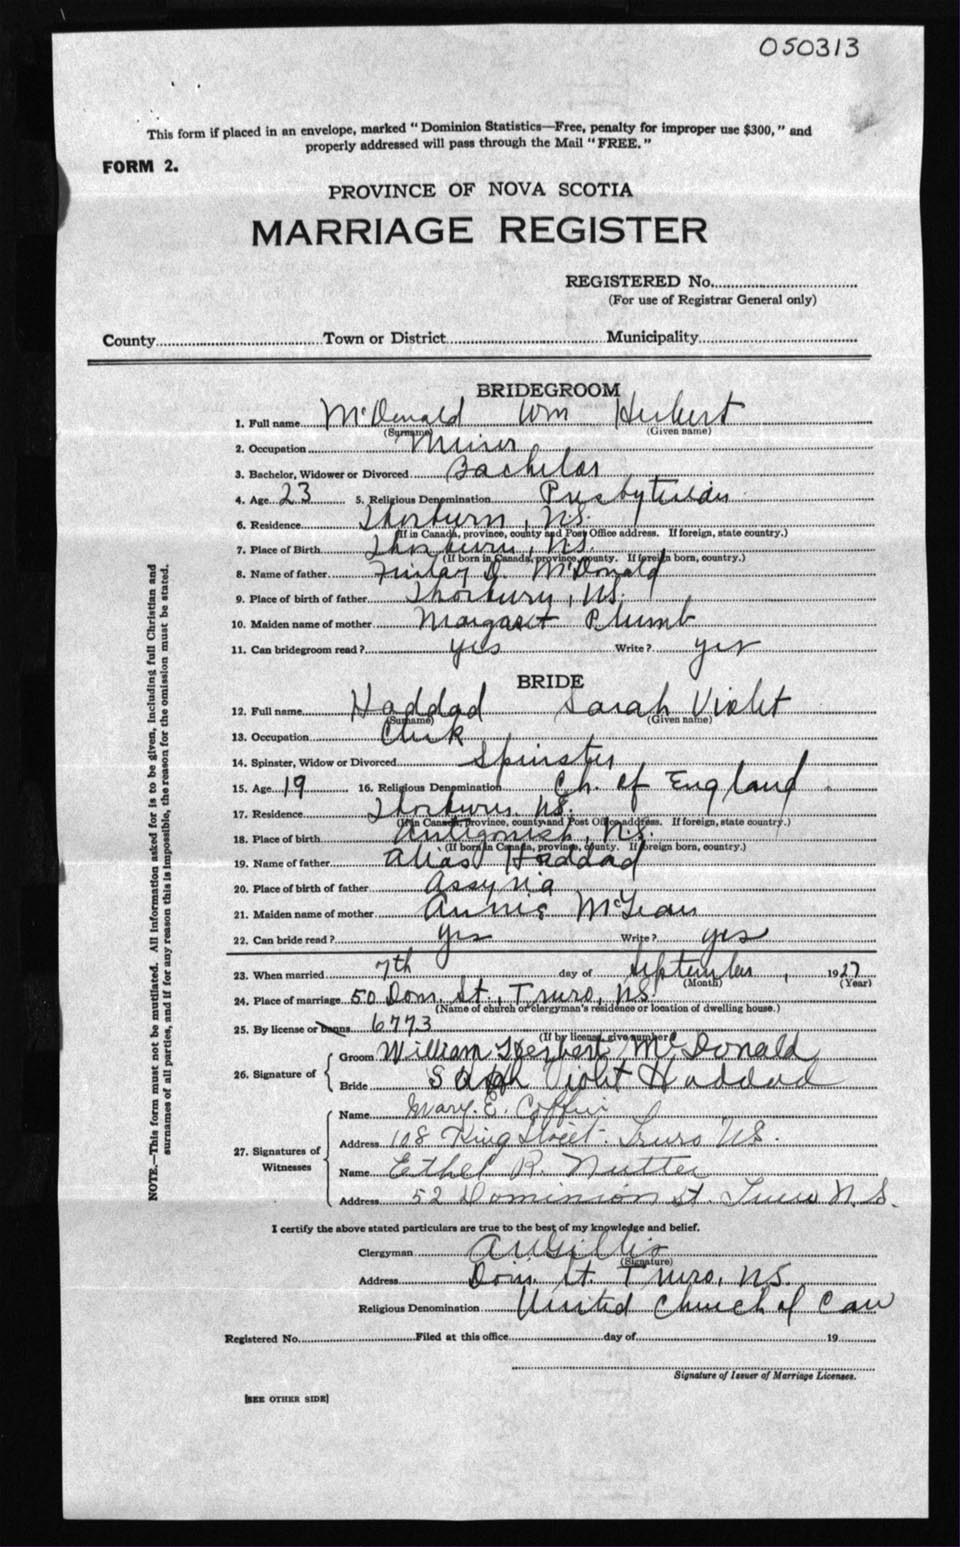 050313
This form if placed in an envelope, marked "Dominion Statistics—Free, penalty for improper use $300," and
properly addressed will pass through the Mail "FREE."
FORM 2.
PROVINCE OF NOVA SCOTIA
MARRIAGE REGISTER
REGISTERED No.
(For use of Registrar General only)
County Town or District Municipality
BRIDEGROOM
1. Full name McDonald Wm Herbert
(Surname) (Given name)
2. Occupation Miner
3. Bachelor, Widower or Divorced Bachelor
4. Age 23 5. Religious Denomination Presbyterian
6. Residence Thorburn, N.S.
(If in Canada, province, county and Post Office address. If foreign, state country.)
7. Place of Birth Thorburn, N.S.
(If born in Canada, province, county. If foreign born, country.)
8. Name of father Finlay D. McDonald
9. Place of birth of father Thorburn, N.S.
10. Maiden name of mother Margaret Plumb
11. Can bridegroom read? yes Write? yes
BRIDE
12. Full name Haddad Sarah Violet
(Surname) (Given name)
13. Occupation Clerk
14. Spinster, Widow or Divorced Spinster
15. Age 19 16. Religious Denomination Ch. of England
17. Residence Thorburn, N.S.
(If in Canada, province, county and Post Office address. If foreign, state country.)
18. Place of birth Antigonish, N.S.
(If born in Canada, province, county. If foreign born, country.)
19. Name of father Alias Haddad
20. Place of birth of father Assyria
21. Maiden name of mother Annie
22. Can bride read? yes Write? yes
23. When married 7th day of September, 1927
(Month) (Year)
24. Place of marriage 50 Dom. St., Truro, N.S.
(Name of church or clergyman's residence or location of dwelling house.)
25. By license or banns 6773
(If by license, give number)
26. Signature of
Groom William Herbert McDonald
Bride Sarah Violet Haddad
27. Signatures of Witnesses
Name Mary. E. Coffin
Address 108 King Street. Truro N.S.
Name Ethel R. Nutter
Address 52 Dominion St. Truro N.S.
I certify the above stated particulars are true to the best of my knowledge and belief.
Clergyman Gillis
(Signature)
Address Dom. St. Truro, N.S.
Religious Denomination United Church of Can
Registered No. Filed at this office day of 19
Signature of Issuer of Marriage Licenses.
[SEE OTHER SIDE]
NOTE.—This form must not be mutilated. All information asked for is to be given, including full Christian and
surnames of all parties, and if for any reason this is impossible, the reason for the omission must be stated.